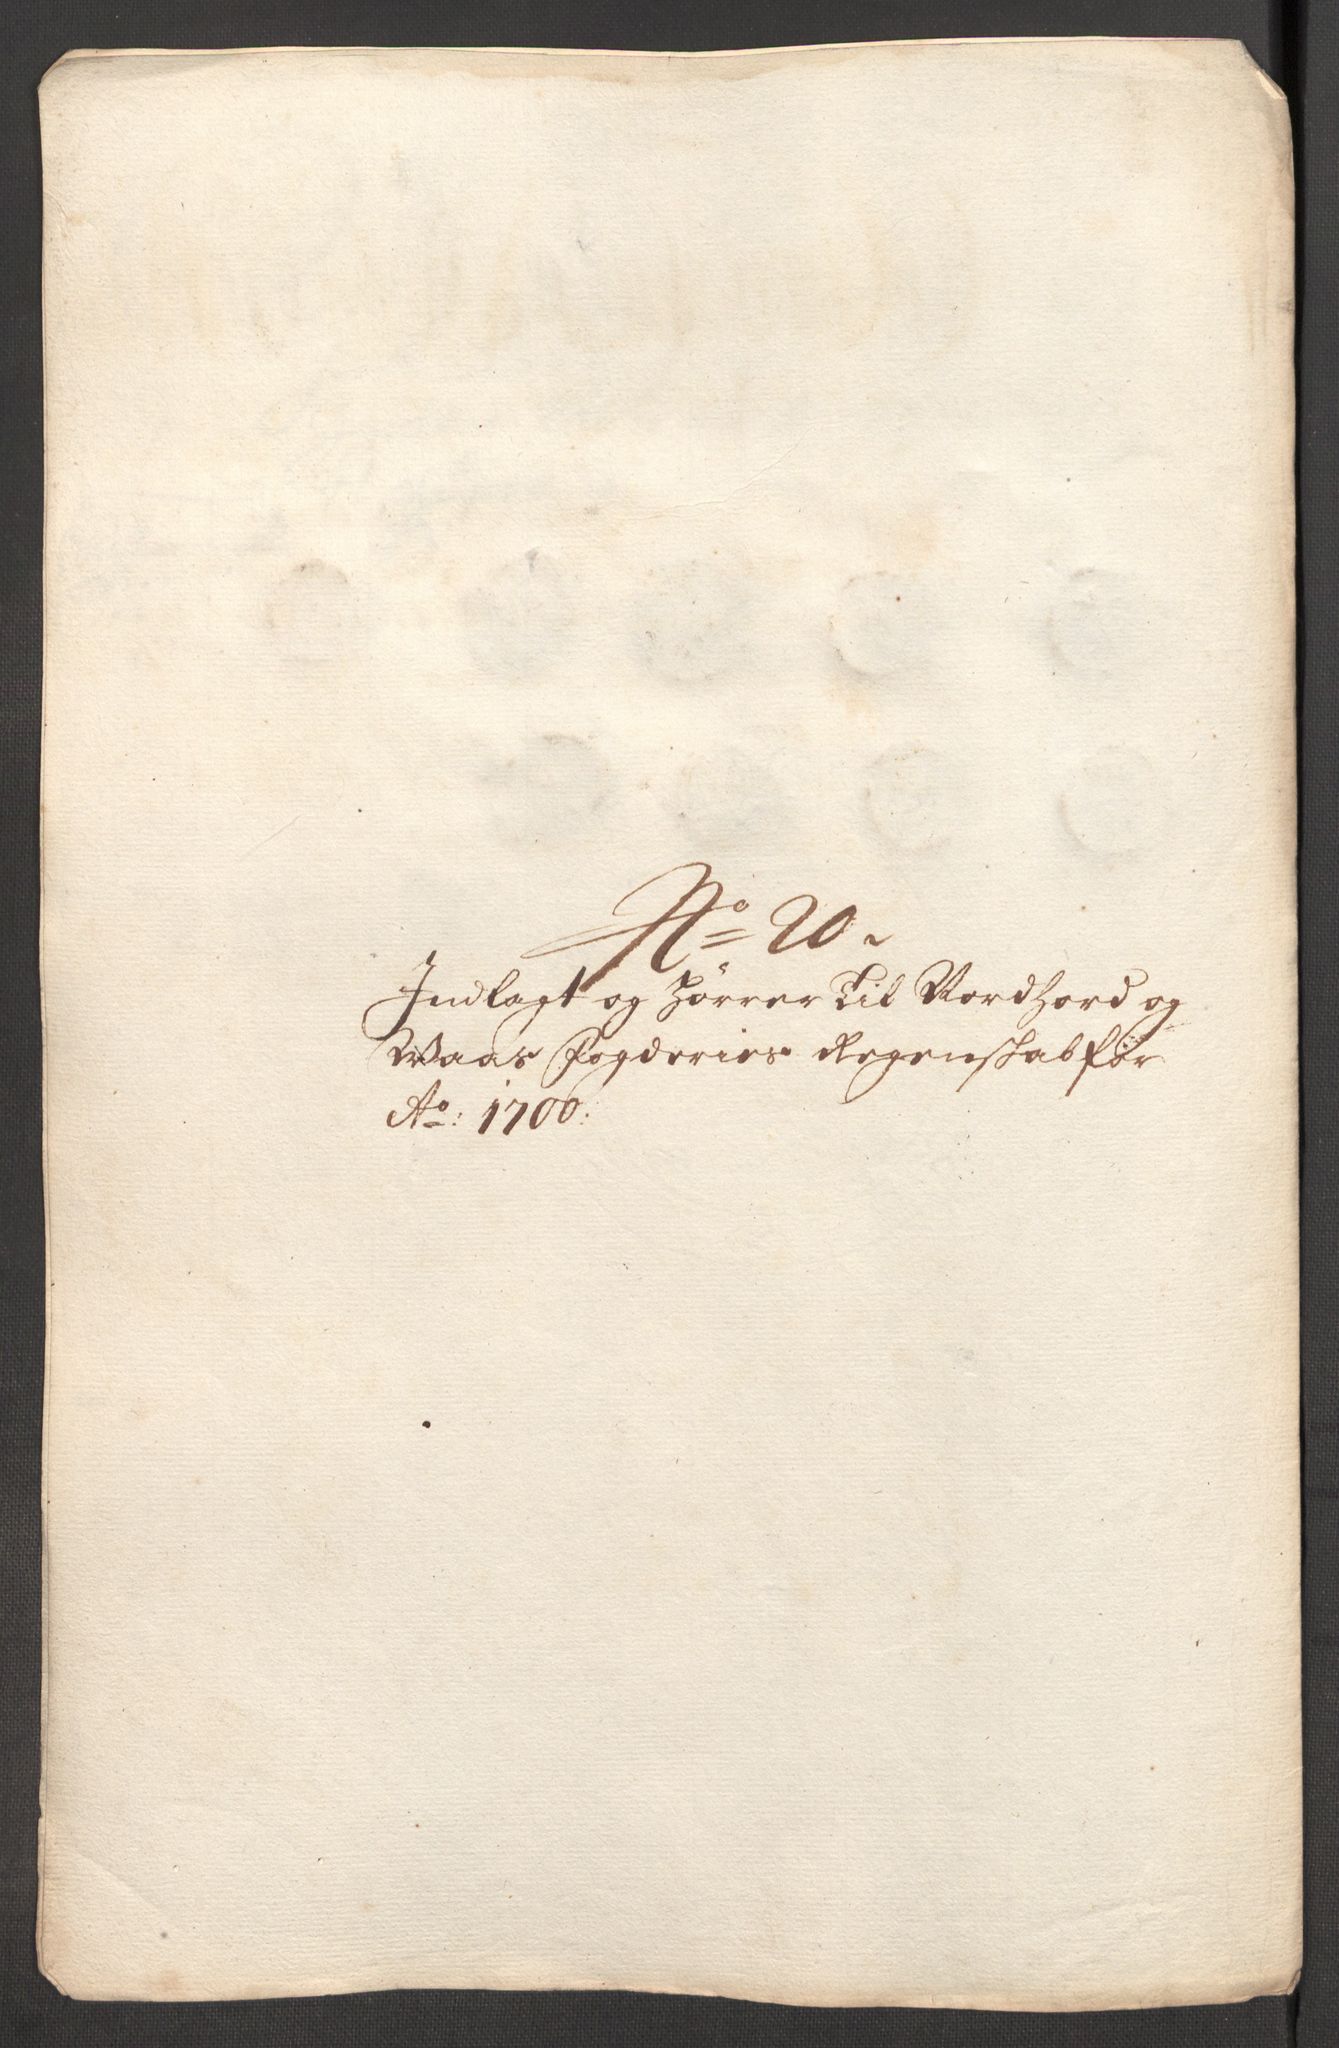 No 20.
Indlagt og hörrer Til Nordhord og
Waas Fogderies Regenskab för
Ao: 1700: